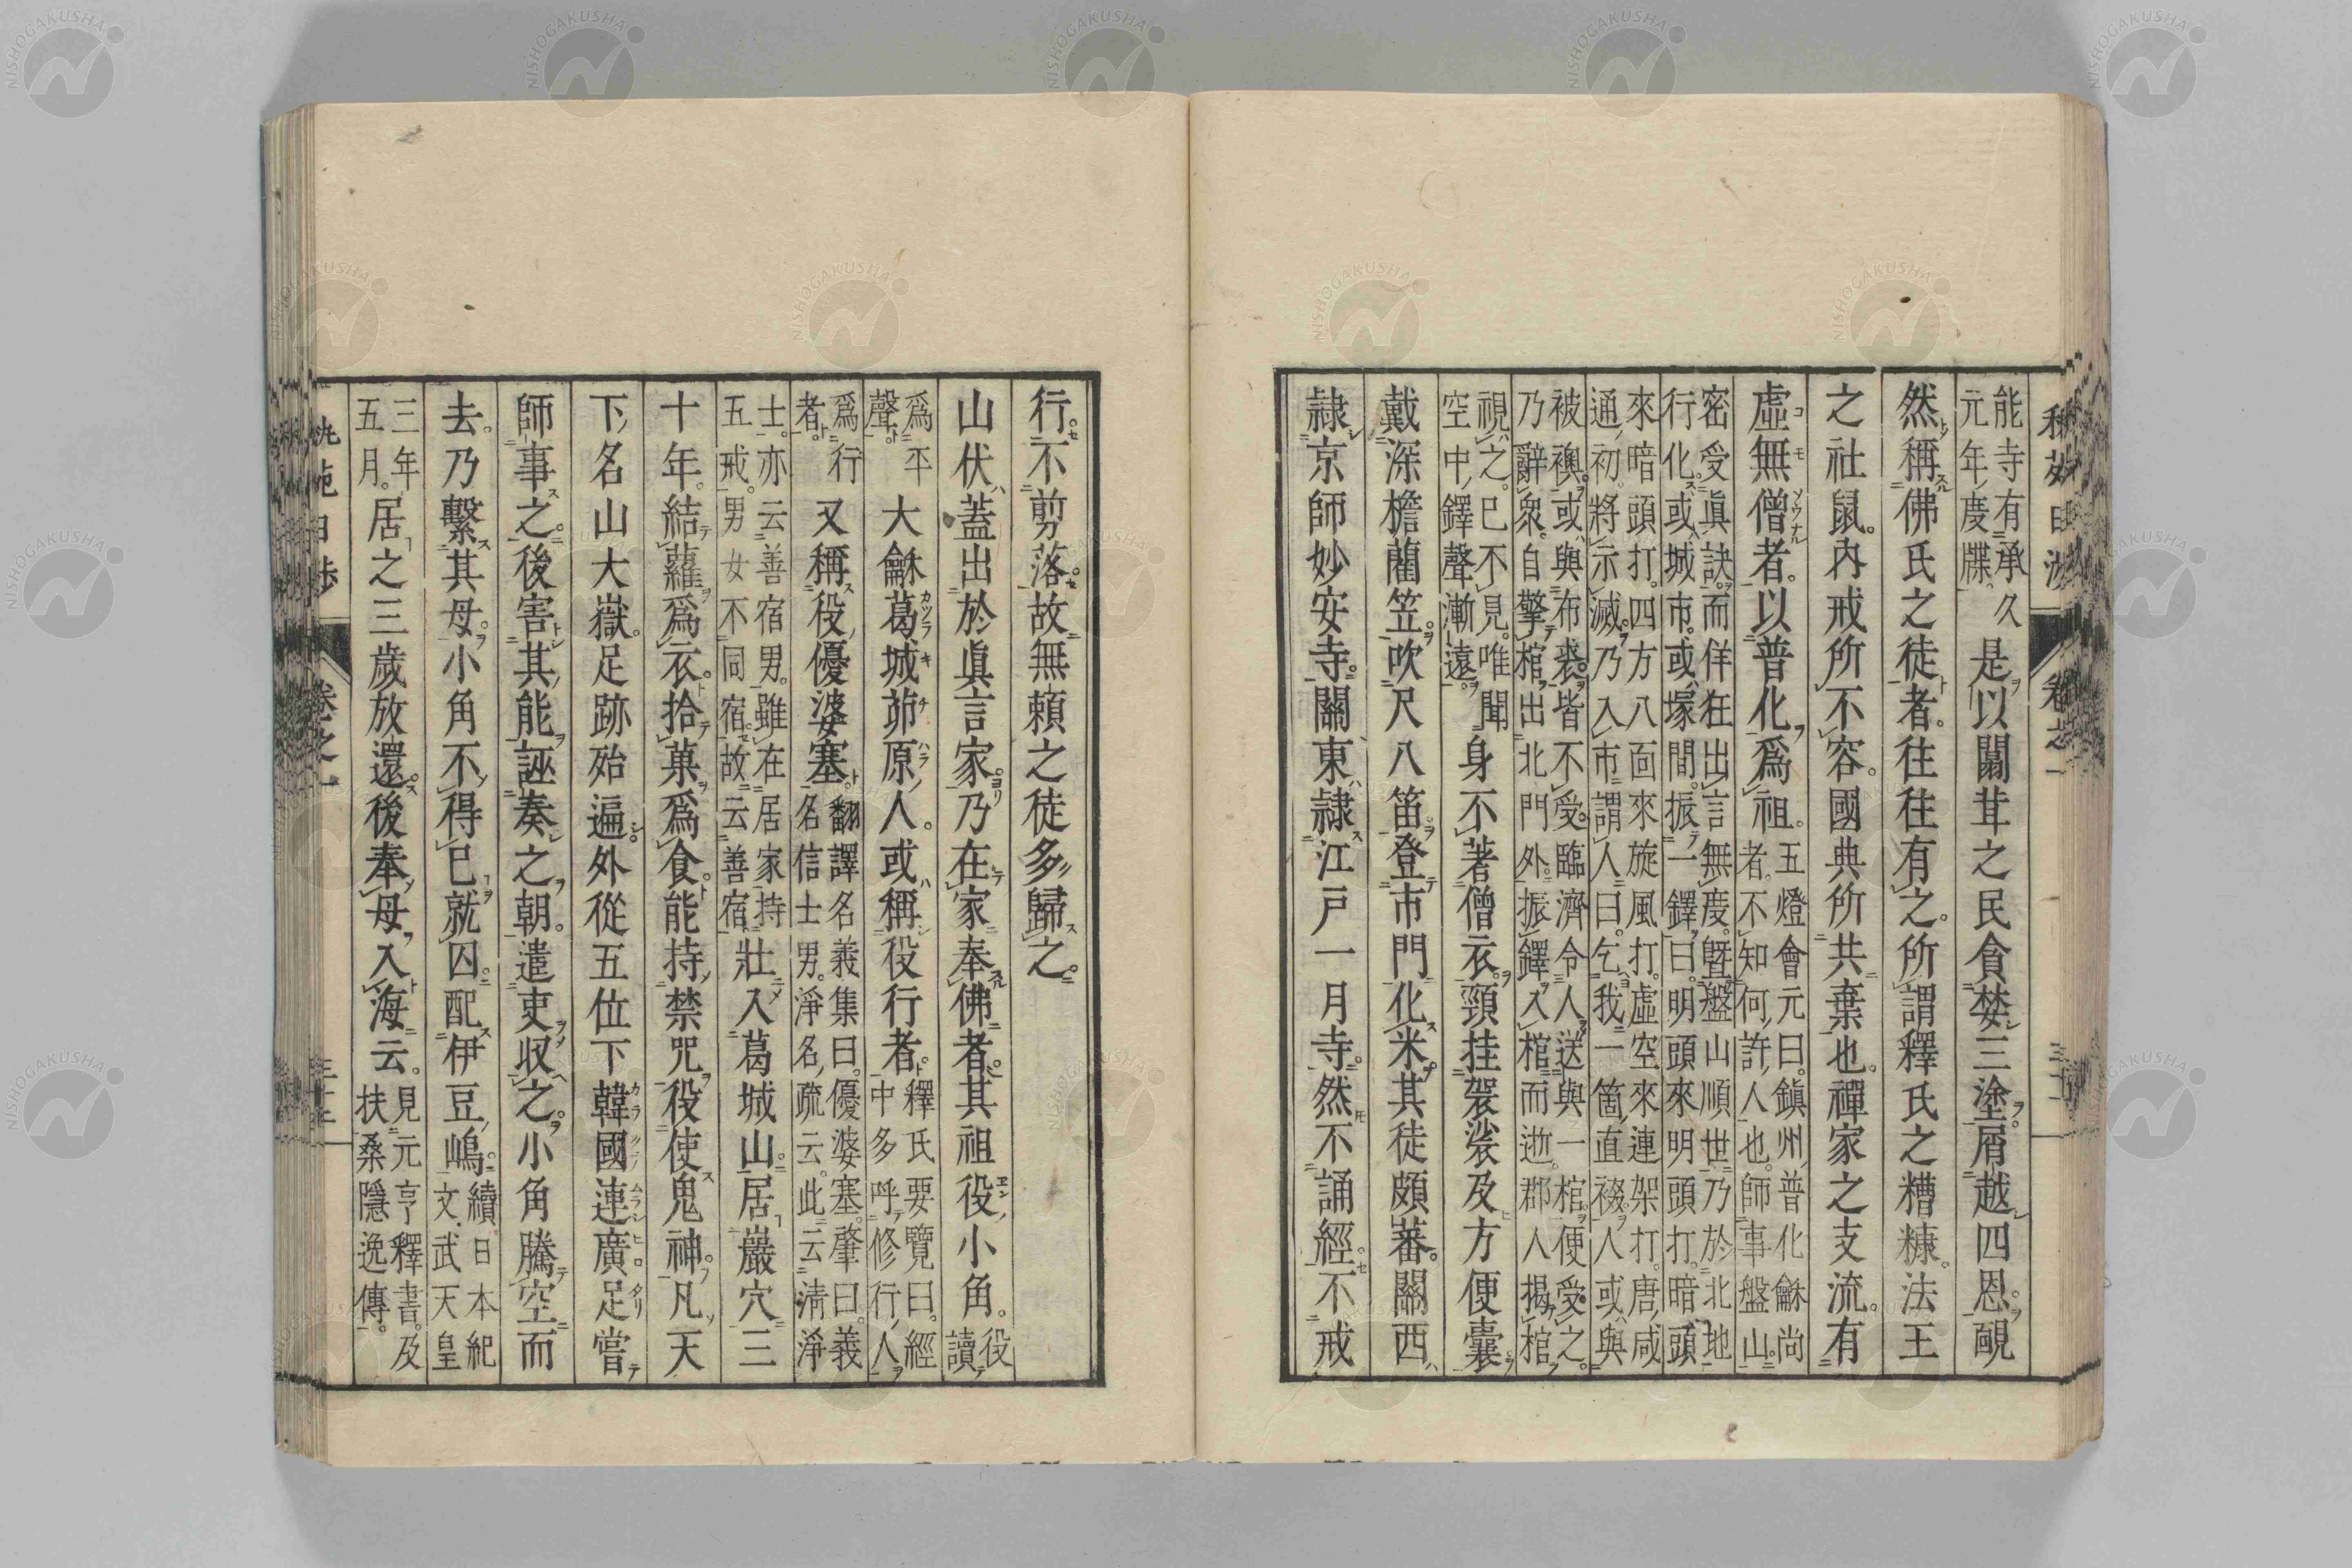 能寺有承久
元年度牒
是以闒茸之民貪婪三塗屑越四恩靦
然稱佛氏之徒者往往有之所謂釋氏之糟糠法王
之社鼠内戒所不容國典所共棄也禪家之支流有
虛無僧者以普化爲祖
五燈會元曰鎭州普化龢尚
者不知何許人也師事盤山
密受眞訣而佯狂出言無度曁盤山順世乃於北地
行化或城市或塚間振一鐸曰明頭來明頭打暗頭
來暗頭打四方八面來旋風打虛空來連架打唐咸
通初將示滅乃入市謂人曰乞我一箇直裰人或與
被襖或與布裘皆不受臨濟令人送與一棺便受之
乃辭衆自擎棺出北門外振鐸入棺而逝郡人揭棺
視之已不見唯聞
空中鐸聲漸遠
身不著僧衣頸挂袈裟及方便囊
戴深檐藺笠吹尺八笛登市門化米其徒頗蕃關西
隷京師妙安寺關東隷江戸一月寺然不誦經不戒
行不剪落故無賴之徒多歸之
山伏蓋出於眞言家乃在家奉佛者其祖役小角
役
讀
爲平
聲
大龢葛城茆原人或稱役行者
釋氏要覽曰經
中多呼修行人
爲行
者
又稱役優婆塞
翻譯名義集曰優婆塞肇曰義
名信士男淨名疏云此云淸淨
士亦云善宿男雖在居家持
五戒男女不同宿故云善宿
壯入葛城山居巖穴三
十年結蘿爲衣拾菓爲食能持禁咒役使鬼神凡天
下名山大嶽足跡殆遍外從五位下韓國連廣足嘗
師事之後害其能誣奏之朝遣吏収之小角騰空而
去乃繫其母小角不得已就囚配伊豆嶋
續日本紀
文武天皇
三年
五月
居之三歲放還後奉母入海云
見元亨釋書及
扶桑隱逸傳